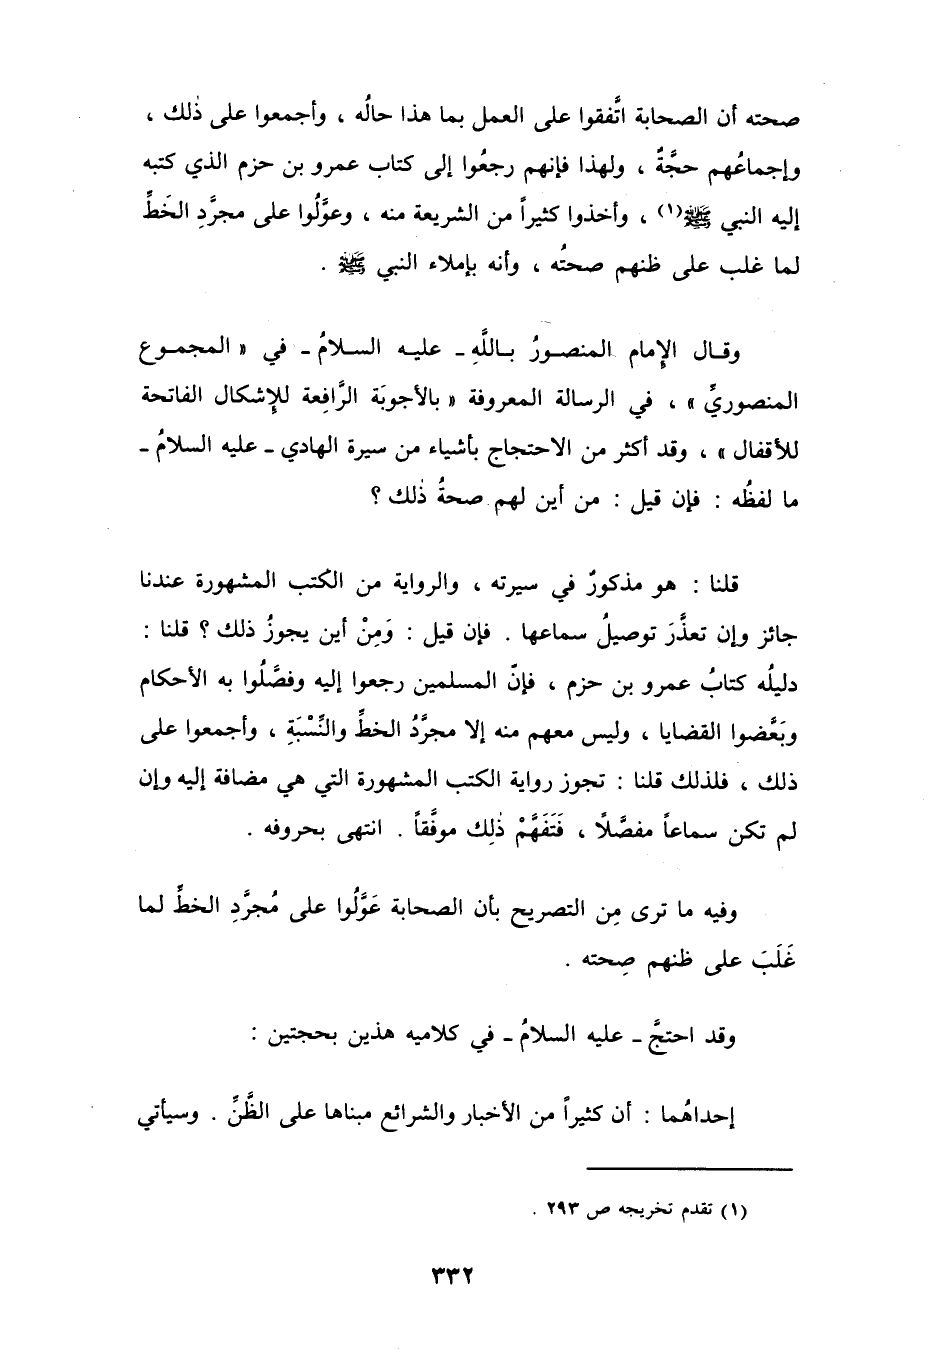 صحته أن الصحابة اتَّفقوا على العمل بما هذا حالُه ، وأجمعوا على ذٰلك ،
وإجماعُهم حجَّةٌ ، ولهذا فإنهم رجعُوا إلى كتاب عمرو بن حزم الذي كتبه
إليه النبي ﷺ(١) ، وأخذوا كثيراً من الشريعة منه ، وعوَّلُوا على مجرَّدِ الخَطِّ
لما غلب على ظنهم صحتُه ، وأنه بإملاء النبي ﷺ .
وقال الإمام المنصورُ باللَّهِ - عليه السلامُ - في « المجموع
المنصوريِّ » ، في الرسالة المعروفة « بالأجوبَة الرَّافِعة للإشكال الفاتحة
للأقفال » ، وقد أكثر من الاحتجاج بأشياء من سيرة الهادي - عليه السلامُ -
ما لفظُه : فإن قيل : من أين لهم صحةُ ذٰلك ؟
قلنا : هو مذكورٌ في سيرته ، والرواية من الكتب المشهورة عندنا
جائز وإن تعذَّرَ توصيلُ سماعها . فإن قيل : وَمِنْ أين يجوزُ ذلك ؟ قلنا :
دليلُه كتابُ عمرو بن حزم ، فإنّ المسلمين رجعوا إليه وفصَّلُوا به الأحكام
وبَعَّضوا القضايا ، وليس معهم منه إلا مجرَّدُ الخطِّ والنِّسْبَةِ ، وأجمعوا على
ذلك ، فلذلك قلنا : تجوز رواية الكتب المشهورة التي هي مضافة إليه وإن
لم تكن سماعاً مفصَّلًا ، فَتَفَهَّمْ ذٰلِك موفَّقاً . انتهى بحروفه .
وفيه ما ترى مِن التصريح بأن الصحابة عَوَّلُوا على مُجرَّدِ الخطِّ لما
غَلَبَ على ظنهم صِحته .
وقد احتجَّ - عليه السلامُ - في كلاميه هذين بحجتين :
إحداهُما : أن كثيراً من الأخبار والشرائع مبناها على الظَّنِّ . وسيأتي
(١) تقدم تخريجه ص ٢٩٣ .
٣٣٢